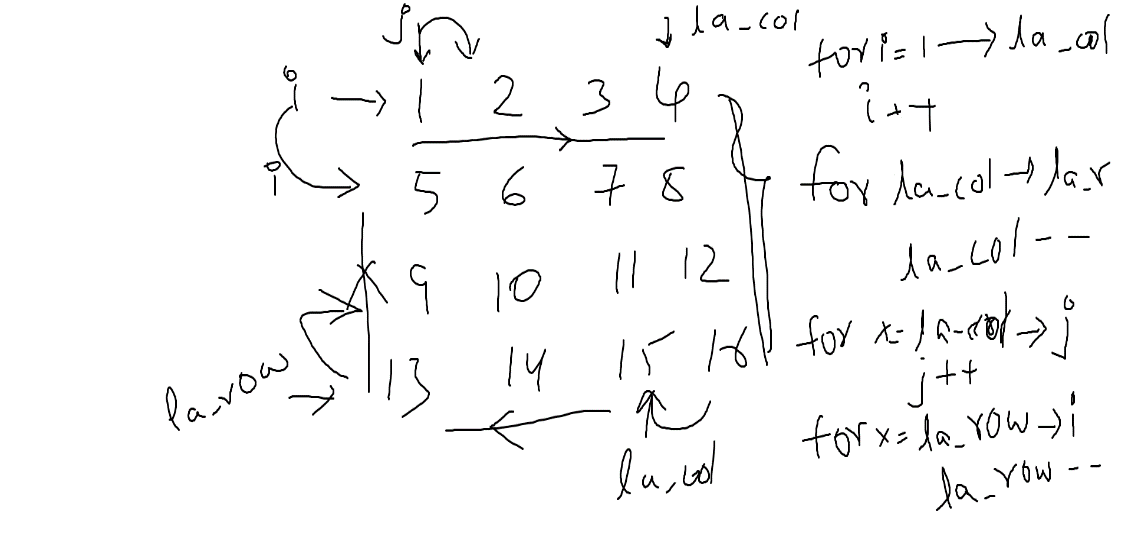 j
la_col
i → 1 2 3 4
i
5 6 7 8
9 10 11 12
la_row → 13 14 15 16
la_col
for i = 1 → la_col
i++
for la_col → la_r
la_col --
for x = la_col → j
j++
for x = la_row → i
la_row --